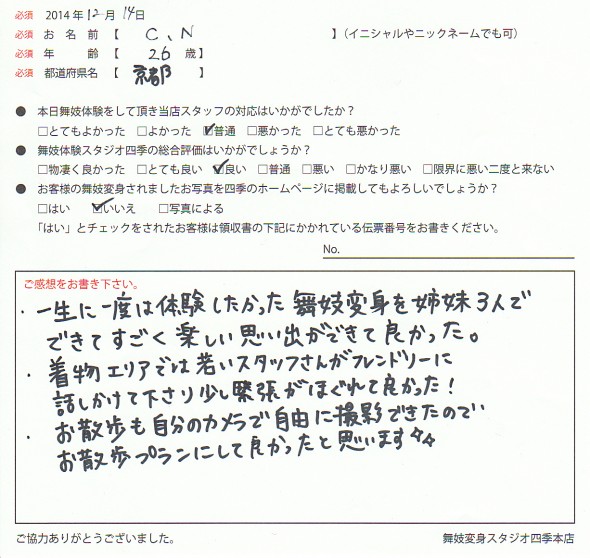 必須 2014年12月14日
必須 お 名 前 【 C、N 】(イニシャルやニックネームでも可)
必須 年　　齢 【 26 歳】
必須 都道府県名 【 京都 】
● 本日舞妓体験をして頂き当店スタッフの対応はいかがでしたか？
□とてもよかった □よかった ☑普通 □悪かった □とても悪かった
● 舞妓体験スタジオ四季の総合評価はいかがでしょうか？
□物凄く良かった □とても良い ☑良い □普通 □悪い □かなり悪い □限界に悪い二度と来ない
● お客様の舞妓変身されましたお写真を四季のホームページに掲載してもよろしいでしょうか？
□はい ☑いいえ □写真による
「はい」とチェックをされたお客様は領収書の下記にかかれている伝票番号をお書きください。
No.
ご感想をお書き下さい。
・一生に一度は体験したかった舞妓変身を姉妹3人で
できてすごく楽しい思い出ができて良かった。
・着物エリアでは若いスタッフさんがフレンドリーに
話しかけて下さり少し緊張がほぐれて良かった！
・お散歩も自分のカメラで自由に撮影できたので
お散歩プランにして良かったと思います
ご協力ありがとうございました。
舞妓変身スタジオ四季本店